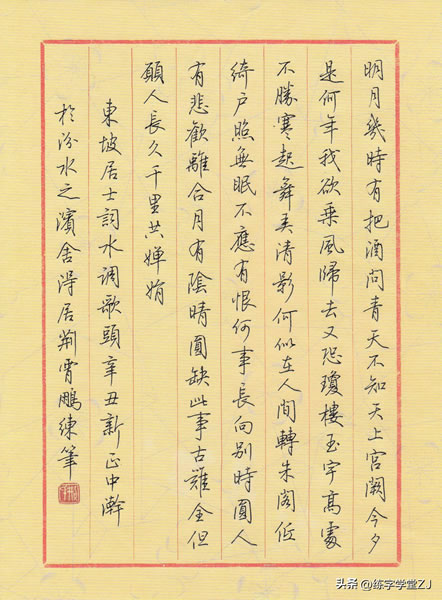 明月幾時有把酒問青天不知天上宮闕今夕
是何年我欲乘風歸去又恐瓊樓玉宇高處
不勝寒起舞弄清影何似在人間轉朱閣低
綺戶照無眠不應有恨何事長向別時圓人
有悲歡離合月有陰晴圓缺此事古難全但
願人長久千里共嬋娟
東坡居士詞水調歌頭辛丑新正中澣
於汾水之濱舍得居荊霄鵬練筆
头条@练字学堂ZJ